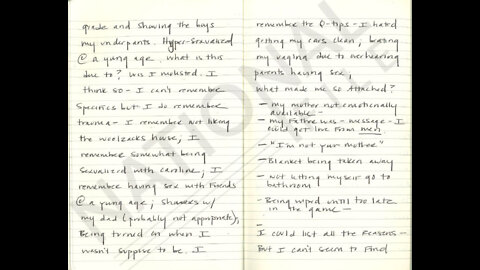 grade and showing the boys
my underpants. Hyper-sexualized
@ a young age. what is this
due to? Was I molested. I
think so - I can't remember
specifics but I do remember
trauma - I remember not liking
the woolzacks house; I
remember somewhat being
sexualized with caroline; I
remember having sex with friends
@ a young age; showers w/
my dad (probably not appropriate);
Being turned on when I
wasn't suppose to be. I
remember the Q-tips - I hated
getting my ears clean;
my vagina due to overhearing
parents having sex;
what made me so Attached?
- my mother not emotionally
available -
- my Father was - message - I
could get love from men.
- "I'm not your mother"
- Blanket being taken away
- not letting myself go to
bathroom
- Being until too late
in the game -
-
I could list all the reasons -
But I can't seem to find
NATIONAL